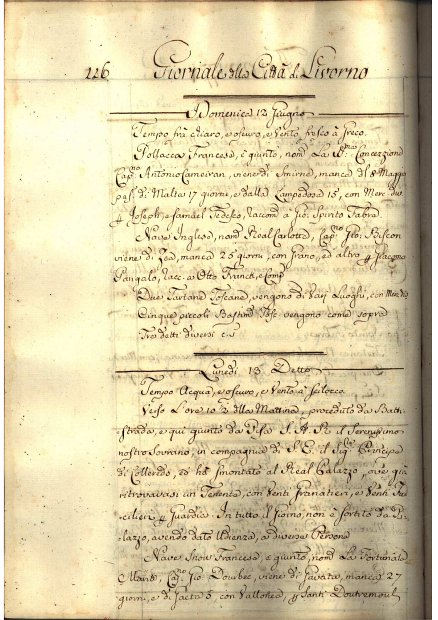 126 Giornale della Città di Livorno
Domenica 12 Giugno
Tempo frà chiaro, e oscuro, e Vento fresco à Greco.
Pollacca Francese, è giunto, nomᵃ La Bᵐᵃ Concezzione
Capⁿᵒ Antonio Cameiran, viene di Smirne, manca dj 8 Maggo
e di Malta 17 giorni, e dalla Lampedosa 15, con Merc
Joseph, e Samuel Tedesco, Racomᵗ a Gio: Spirito Fabra.
Nave Inglese, nomᵗᵃ Real Carlotta, Capⁿᵒ Gio: Biscon
viene di Zea, manca 26 giorni, con Grano, ed altro Giacomo
Pangalo, Racc. a Otto Franck, e Comp
Due Tartane Toscane, vengono di varj Luoghi, con Merc
Cinque piccoli Bastimᵗⁱ vengono come sopra
Tre detti diversi c.s
Lunedì 13 Detto
Tempo Acqua, e oscuro, e Vento à Scilocco.
Verso l'ore 10 ½ della Mattina, preceduto da Batti
Strada, e qui giunto da Pisa S. A. R: il Serenissimo
nostro Sovrano, in compagnia di S. E. il Sigʳᵉ Principe
di Colleredo, ed hà smontato al Real Palazzo, ove già
ritrovavasi un Tenente, con Venti Granatieri, e Venti Fu-
cilieri, Guardia. In tutto il giorno, non è sortito da Pa-
lazzo, avendo dato Udienza, a diverse Persone
Nave Snow Francese, è giunto, nomᵗᵃ La Fortunata
Maria, Capⁿᵒ Gio: Doubec, viene di Javata, manca 27
giorni, e di Jaetra 6, con Vallonea, Santi Doutremoul